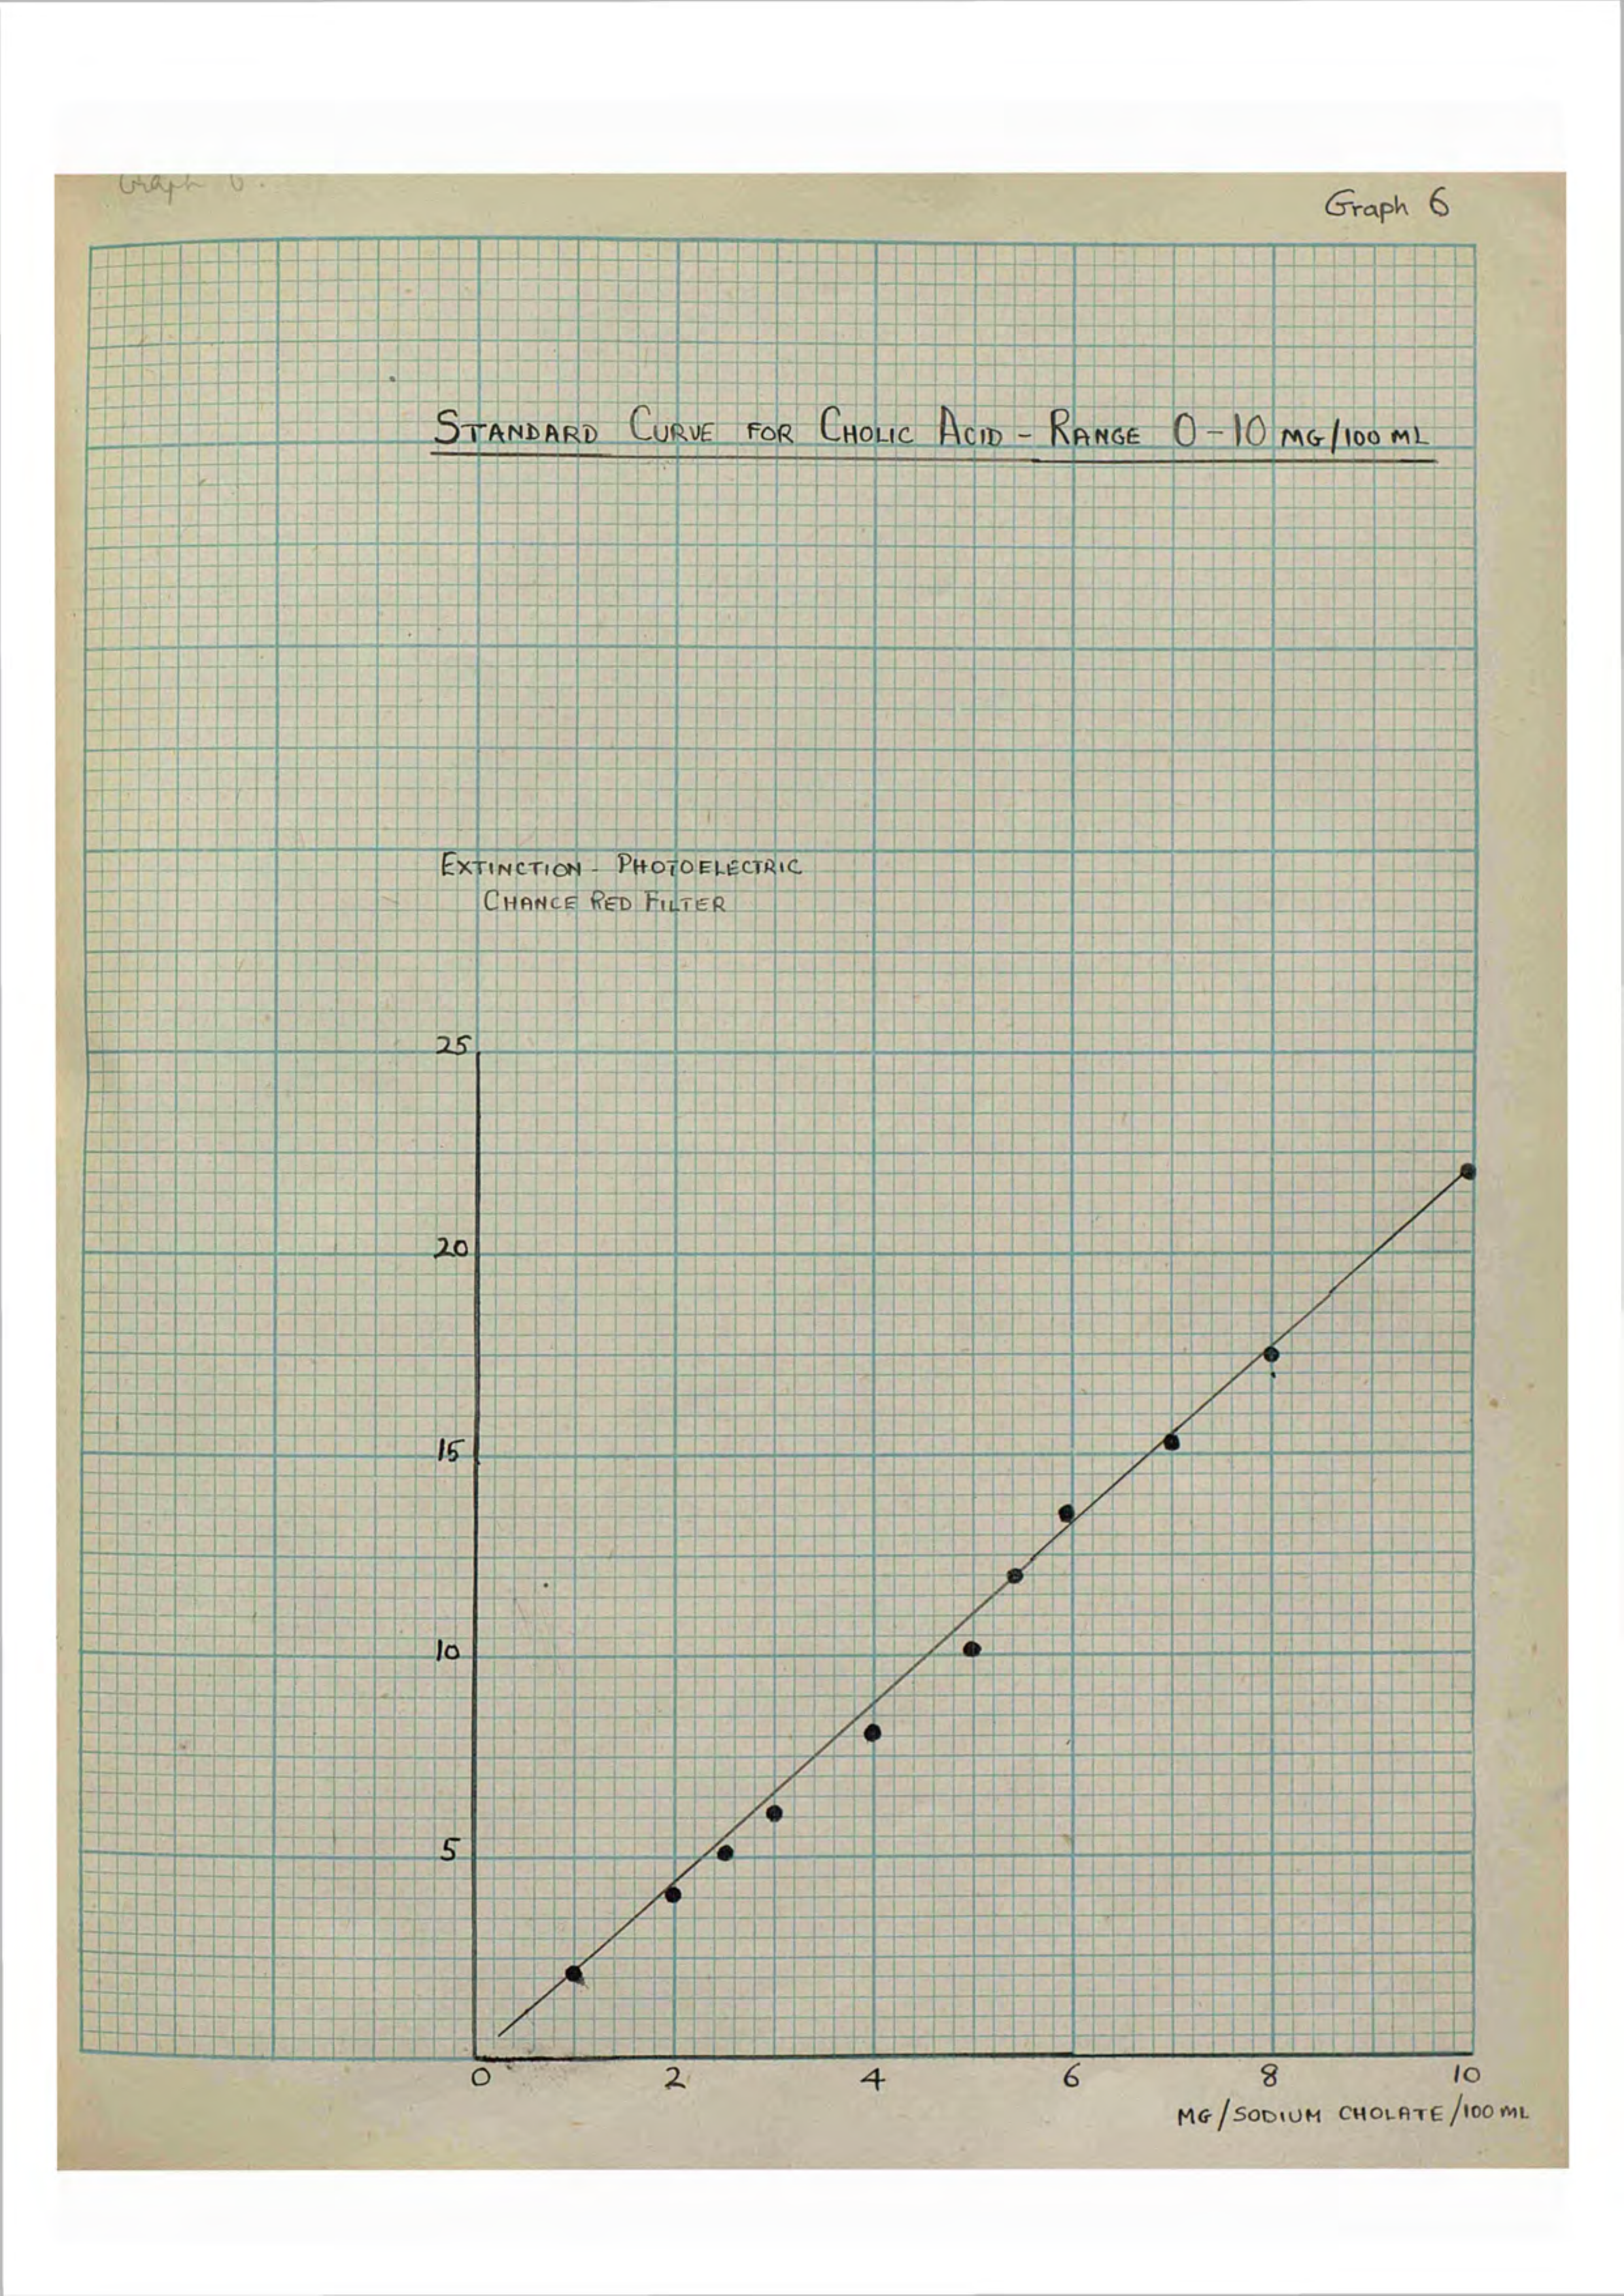 Graph 6.
Graph 6
STANDARD CURVE FOR CHOLIC ACID - RANGE 0-10 MG/100 ML
EXTINCTION - PHOTOELECTRIC
CHANCE RED FILTER
25
20
15
10
5
0 2 4 6 8 10
MG/SODIUM CHOLATE/100 ML